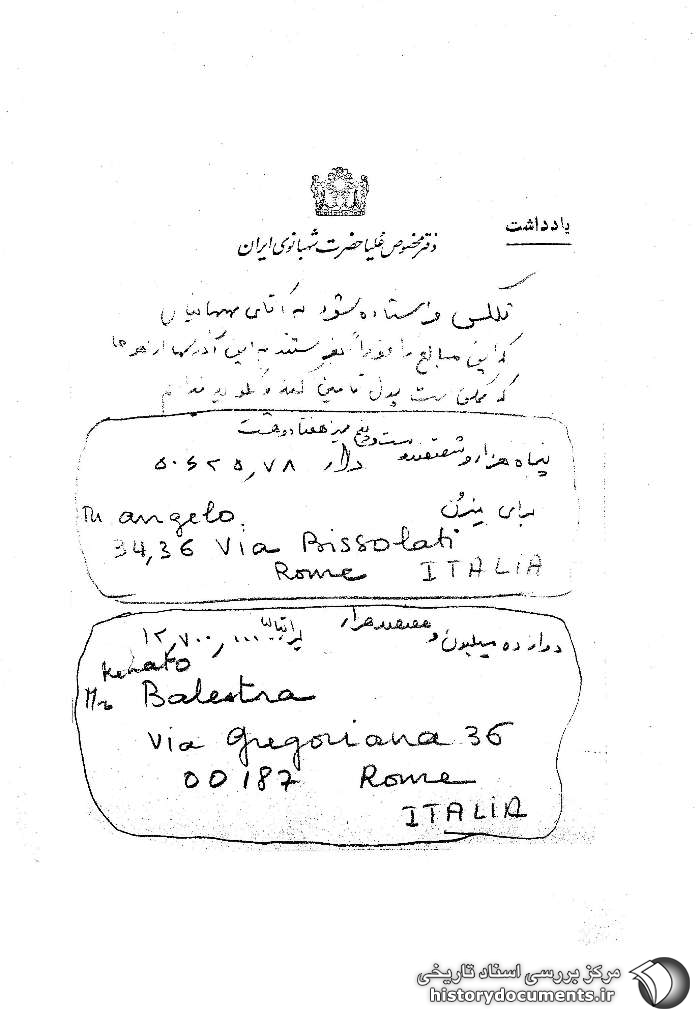 یادداشت
دفتر مخصوص علیاحضرت شهبانوی ایران
تلکس فرستاده شود به آقای بهبهانیان
که این مبالغ را فوراً بفرستند به این آدرسها از هر جا
که ممکن است پول تأمین کنند و
پنجاه هزار و ششصد و بیست و پنج ممیز هفتاد و هشت
دلار ۵۰۶۲۵,۷۸
برای
angelo
34,36 Via Bissolati
Rome ITALIA
دوازده میلیون و هفتصد هزار
لیر ایتالیا ۱۲,۷۰۰,۰۰۰
Renato
Mr Balestra
Via Gregoriana 36
00187 Rome
ITALIA
مرکز بررسی اسناد تاریخی
historydocuments.ir